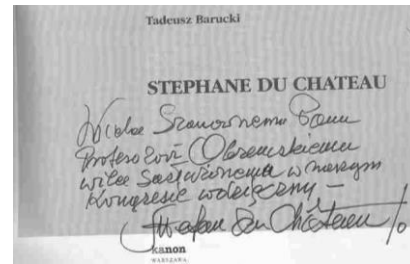 Tadeusz Barucki
STEPHANE DU CHATEAU
Wielce Szanownemu Panu
Profesorowi
wielce w naszym
Kongresie wdzięczny –
Stefan Du Château
kanon
WARSZAWA